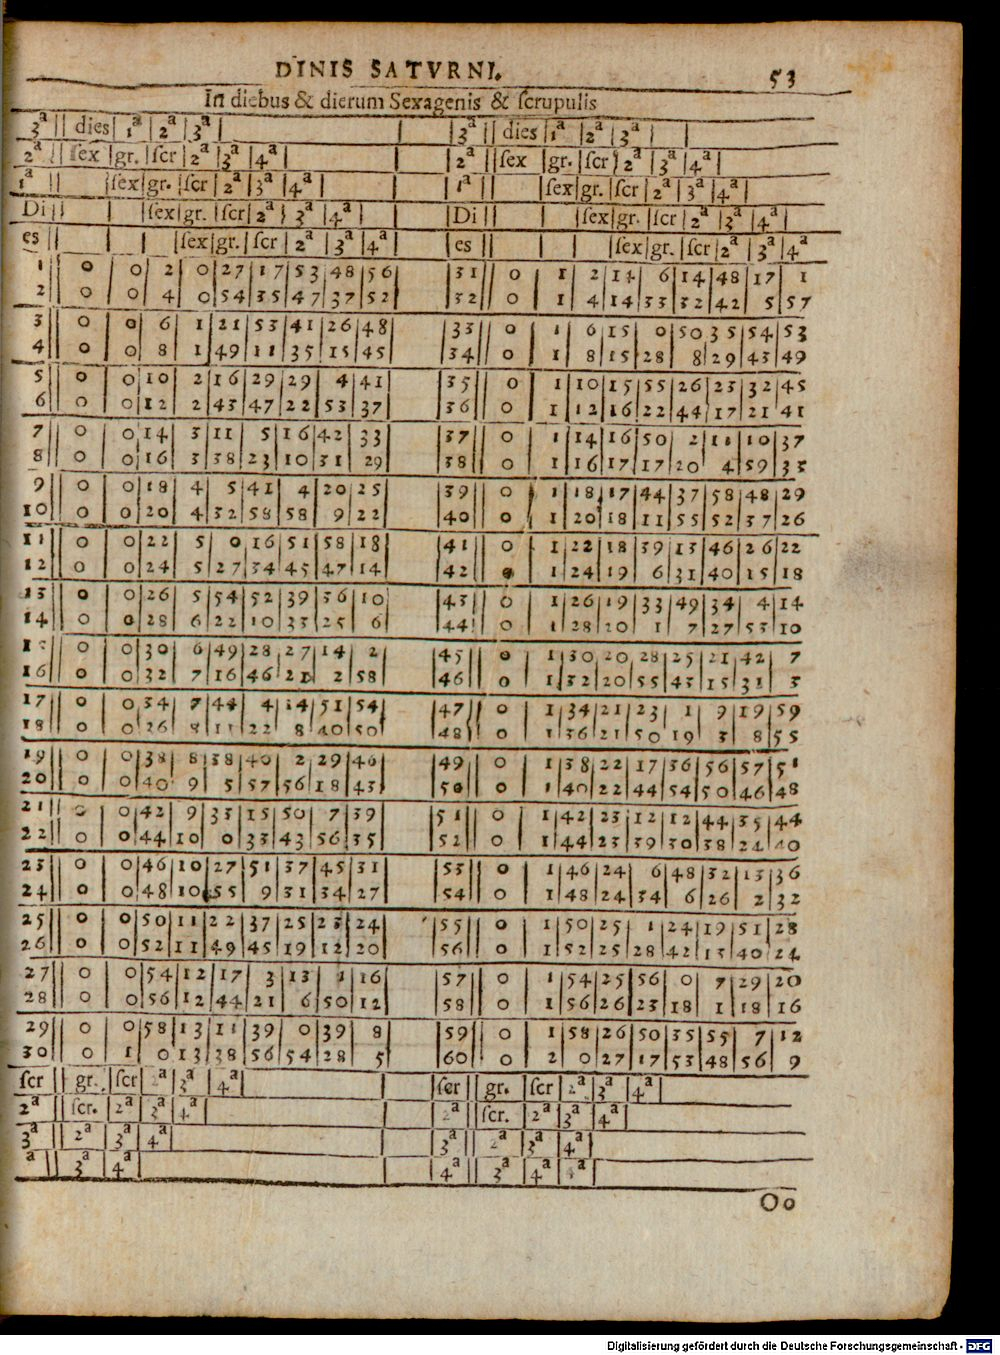 DINIS SATVRNI.
53
In diebus & dierum Sexagenis & scrupulis
3ª dies 1ª 2ª 3ª 3ª dies 1ª 2ª 3ª
2ª sex gr. scr 2ª 3ª 4ª 2ª sex gr. scr 2ª 3ª 4ª
1ª sex gr. scr 2ª 3ª 4ª 1ª sex gr. scr 2ª 3ª 4ª
Di sex gr. scr 2ª 3ª 4ª Di sex gr. scr 2ª 3ª 4ª
es sex gr. scr 2ª 3ª 4ª es sex gr. scr 2ª 3ª 4ª
1 0 0 2 0 27 17 53 48 56 31 0 1 2 14 6 14 48 17 1
2 0 0 4 0 54 35 47 37 52 32 0 1 4 14 33 32 42 5 57
3 0 0 6 1 21 53 41 26 48 33 0 1 6 15 0 50 35 54 53
4 0 0 8 1 49 11 35 15 45 34 0 1 8 15 28 8 29 43 49
5 0 0 10 2 16 29 29 4 41 35 0 1 10 15 55 26 23 32 45
6 0 0 12 2 43 47 22 53 37 36 0 1 12 16 22 44 17 21 41
7 0 0 14 3 11 5 16 42 33 37 0 1 14 16 50 2 11 10 37
8 0 0 16 3 38 23 10 31 29 38 0 1 16 17 17 20 4 59 33
9 0 0 18 4 5 41 4 20 25 39 0 1 18 17 44 37 58 48 29
10 0 0 20 4 32 58 58 9 22 40 0 1 20 18 11 55 52 37 26
11 0 0 22 5 0 16 51 58 18 41 0 1 22 18 39 13 46 26 22
12 0 0 24 5 27 34 45 47 14 42 0 1 24 19 6 31 40 15 18
13 0 0 26 5 54 52 39 36 10 43 0 1 26 19 33 49 34 4 14
14 0 0 28 6 22 10 33 25 6 44 0 1 28 20 1 7 27 53 10
15 0 0 30 6 49 28 27 14 2 45 0 1 30 20 28 25 21 42 7
16 0 0 32 7 16 46 21 2 58 46 0 1 32 20 55 43 15 31 3
17 0 0 34 7 44 4 14 51 54 47 0 1 34 21 23 1 9 19 59
18 0 0 36 8 11 22 8 40 50 48 0 1 36 21 50 19 3 8 55
19 0 0 38 8 38 40 2 29 46 49 0 1 38 22 17 36 56 57 51
20 0 0 40 9 5 57 56 18 43 50 0 1 40 22 44 54 50 46 48
21 0 0 42 9 33 15 50 7 39 51 0 1 42 23 12 12 44 35 44
22 0 0 44 10 0 33 43 56 35 52 0 1 44 23 39 30 38 24 40
23 0 0 46 10 27 51 37 45 31 53 0 1 46 24 6 48 32 13 36
24 0 0 48 10 55 9 31 34 27 54 0 1 48 24 34 6 26 2 32
25 0 0 50 11 22 37 25 23 24 55 0 1 50 25 1 24 19 51 28
26 0 0 52 11 49 45 19 12 20 56 0 1 52 25 28 42 13 40 24
27 0 0 54 12 17 3 13 1 16 57 0 1 54 25 56 0 7 29 20
28 0 0 56 12 44 21 6 50 12 58 0 1 56 26 23 18 1 18 16
29 0 0 58 13 11 39 0 39 8 59 0 1 58 26 50 35 55 7 12
30 0 1 0 13 38 56 54 28 5 60 0 2 0 27 17 53 48 56 9
scr gr. scr 2ª 3ª 4ª scr gr. scr 2ª 3ª 4ª
2ª scr. 2ª 3ª 4ª 2ª scr. 2ª 3ª 4ª
3ª 2ª 3ª 4ª 3ª 2ª 3ª 4ª
ª 3ª 4ª 4ª 3ª 4ª
Oo
Digitalisierung gefördert durch die Deutsche Forschungsgemeinschaft - DFG